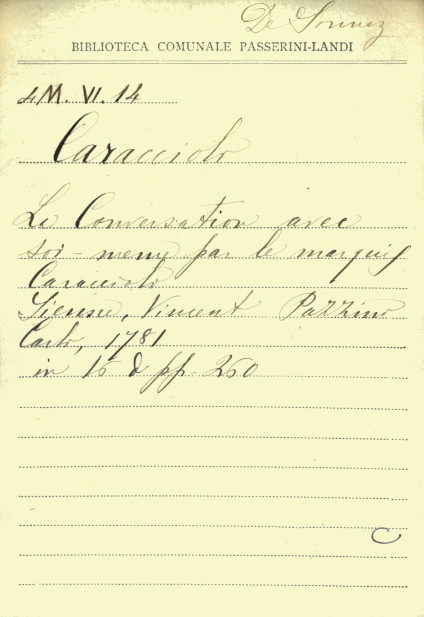 De
BIBLIOTECA COMUNALE PASSERINI-LANDI
4M. VI. 14
Caracciolo
La Conversation avec
soi-meme par le marquis
Caracciolo
Sienne, Vincent Pazzini
Carli, 1781
in 16 d pp. 260
C